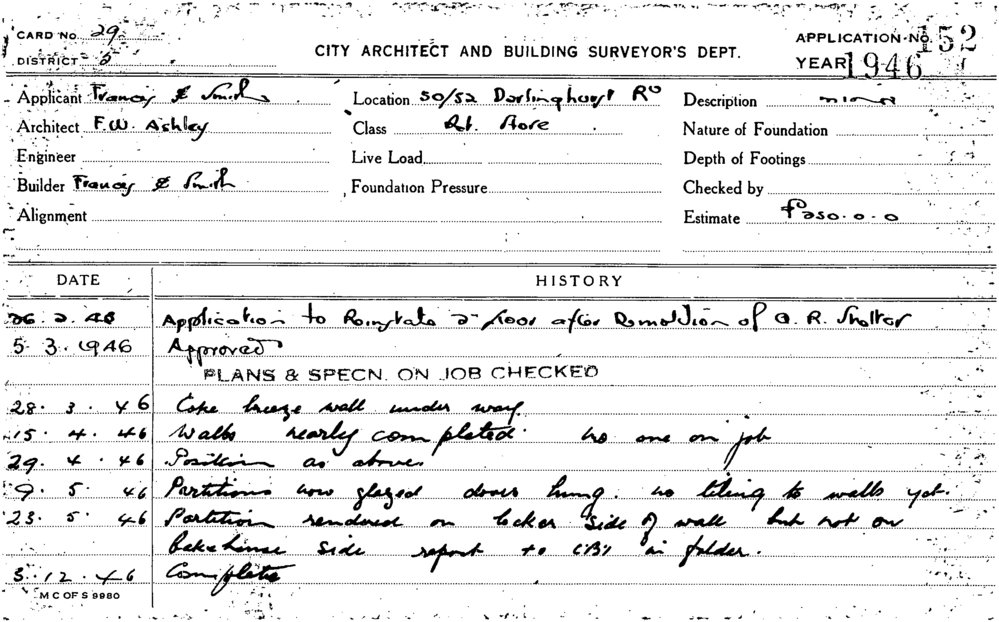 CARD No. 29
DISTRICT 2
CITY ARCHITECT AND BUILDING SURVEYOR'S DEPT.
APPLICATION No. 152
YEAR 1946
Applicant Francis & Smith
Location 50/52 Darlinghurst Rd
Description
Architect F.W. Ashley
Class Store
Nature of Foundation
Engineer
Live Load
Depth of Footings
Builder Francis & Smith
Foundation Pressure
Checked by
Alignment
Estimate £250.0.0
DATE HISTORY
26.2.46 Application to Reinstate 2 floor after Demolition of A.R. Shelter
5.3.1946 Approved
PLANS & SPECN. ON JOB CHECKED
28.3.46 Coke breeze wall under way
15.4.46 Walls nearly completed. no one on job
29.4.46 Position as above
9.5.46 Partitions now glazed doors hung. no tiling to walls yet.
23.5.46 Partition rendered on locker side of wall but not on
bakehouse side report to in folder.
3.12.46 Complete
M C OF S 9980